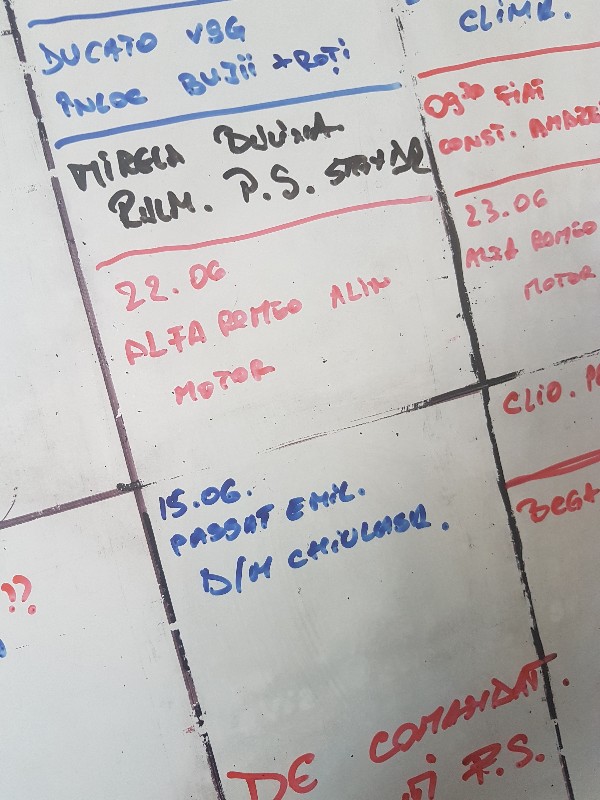 DUCATO VSG
ÎNLOC BUJII + ROȚI
MIRELA
RULM. P.S. STAND
22.06
ALFA ROMEO ALIN
MOTOR
15.06.
PASSAT EMIL.
D/M CHIULASA.
CLIMA.
09³⁰ FIAT
CONST. ANDREI
23.06
ALFA ROMEO
MOTOR
CLIO.
DE COMANDAT.
P.S.
??